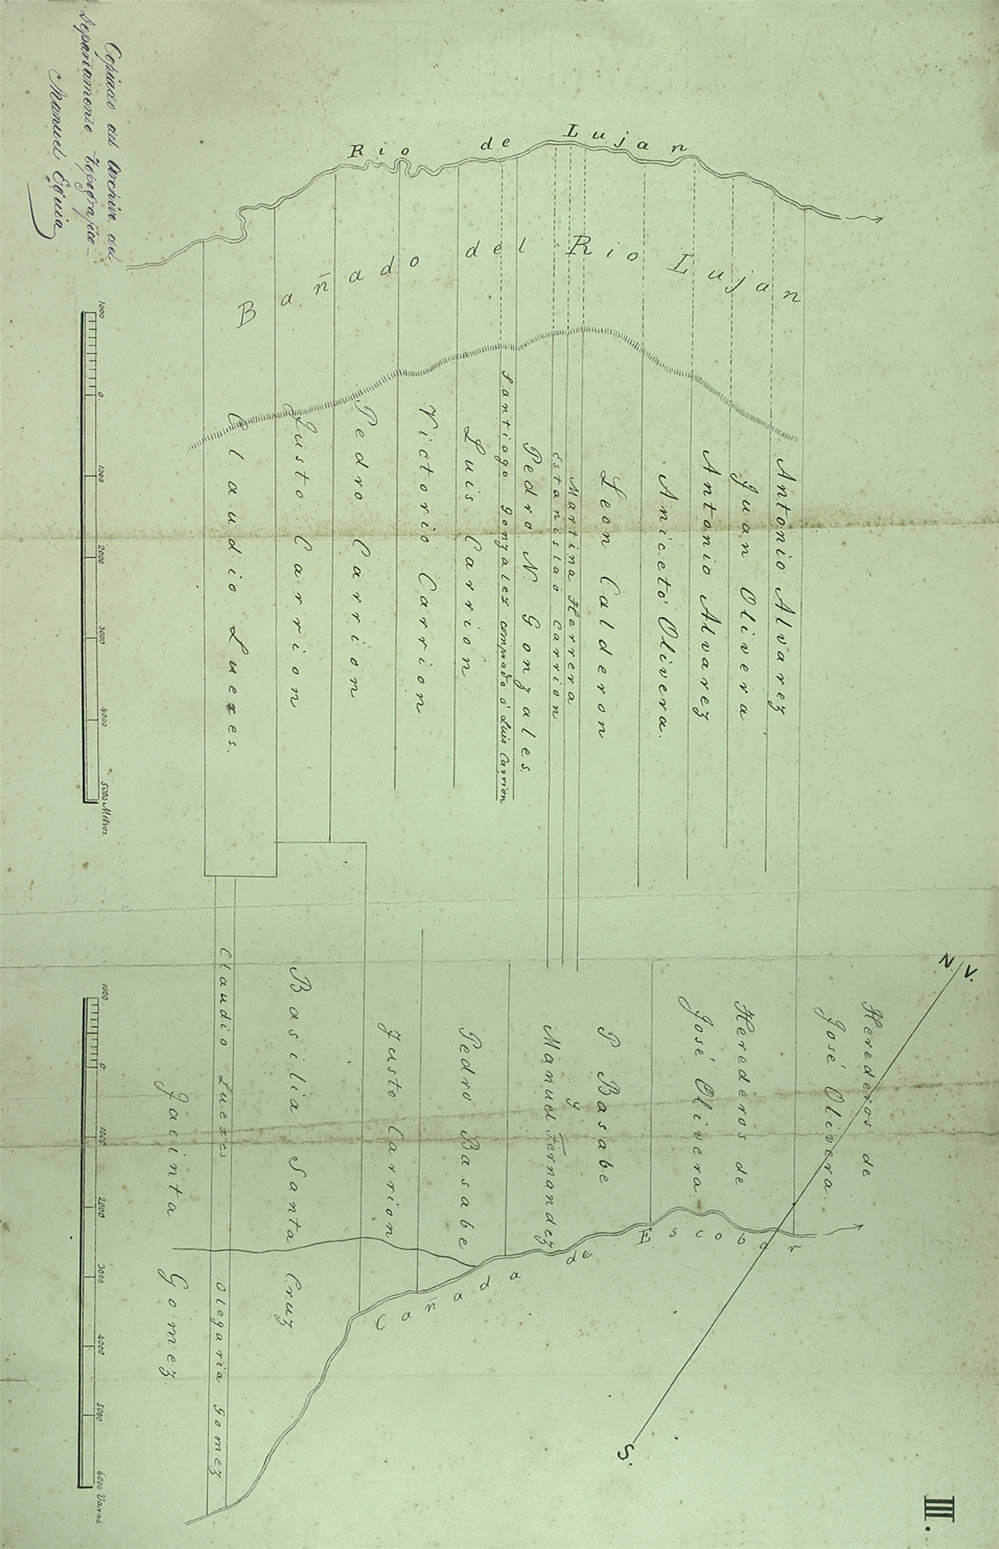 III.
Copiado del Archivo del
Departamento Topografico
Manuel Eguia
Rio de Lujan
Bañado del Rio Lujan
Antonio Alvarez
Juan Olivera
Antonio Alvarez
Aniceto Olivera.
Leon Calderon
Martina Herrera
Estanislao Carrion
Pedro N. Gonzales.
Santiago Gonzalez comprado á Luis Carrion
Luis Carrion
Victorio Carrion
Pedro Carrion
Justo Carrion
Claudio Luexes.
1000 0 1000 2000 3000 4000 5000 Metros.
N. V.
S.
Herederos de
José Olivera.
Herederos de
José Olivera
P Basabe
y
Manuel Fernandez
Pedro Basabe
Justo Carrion
Basilia Santa Cruz
Claudio Luexes
Olegaria Gomez
Jacinta Gomez.
Cañada de Escobar
1000 0 1000 2000 3000 4000 5000 6000 Varas